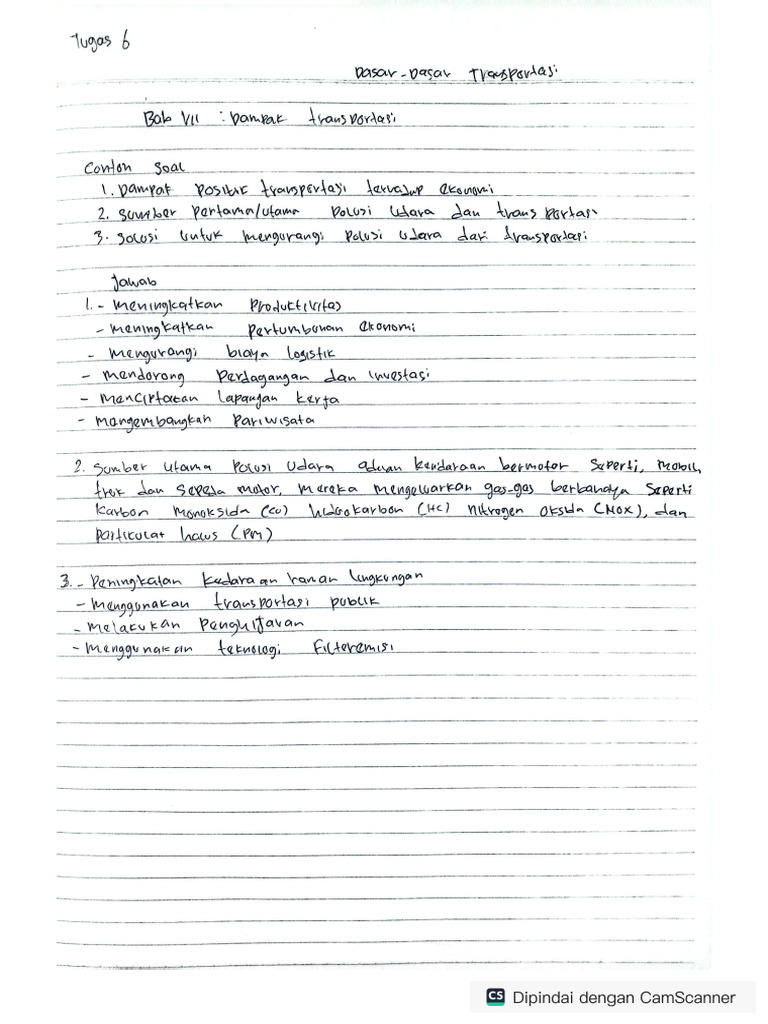 Tugas 6
Dasar-Dasar Transportasi
Bab VII : Dampak transportasi
Conton soal
1. Dampat positik transportasi terhadap ekonomi
2. Sumber pertama/utama polusi udara dan transportasi
3. Solusi untuk mengurangi polusi udara dari transportasi
Jawab
1. - meningkatkan Produktivitas
- meningkatkan pertumbuhan ekonomi
- mengurangi biaya logistik
- mendorong perdagangan dan investasi
- menciptakan lapangan kerja
- mengembangkan pariwisata
2. Sumber utama polusi udara adalah kendaraan bermotor seperti, mobil,
trek dan sepeda motor, mereka mengeluarkan gas-gas berbahaya seperti
karbon monoksida (CO) hidrokarbon (HC) nitrogen oksida (NOX), dan
particulat halus (PM)
3. - Peningkatan kedaraan ramah lingkungan
- menggunakan transportasi publik
- melakukan penghijauan
- menggunakan teknologi Filteremisi
CS Dipindai dengan CamScanner